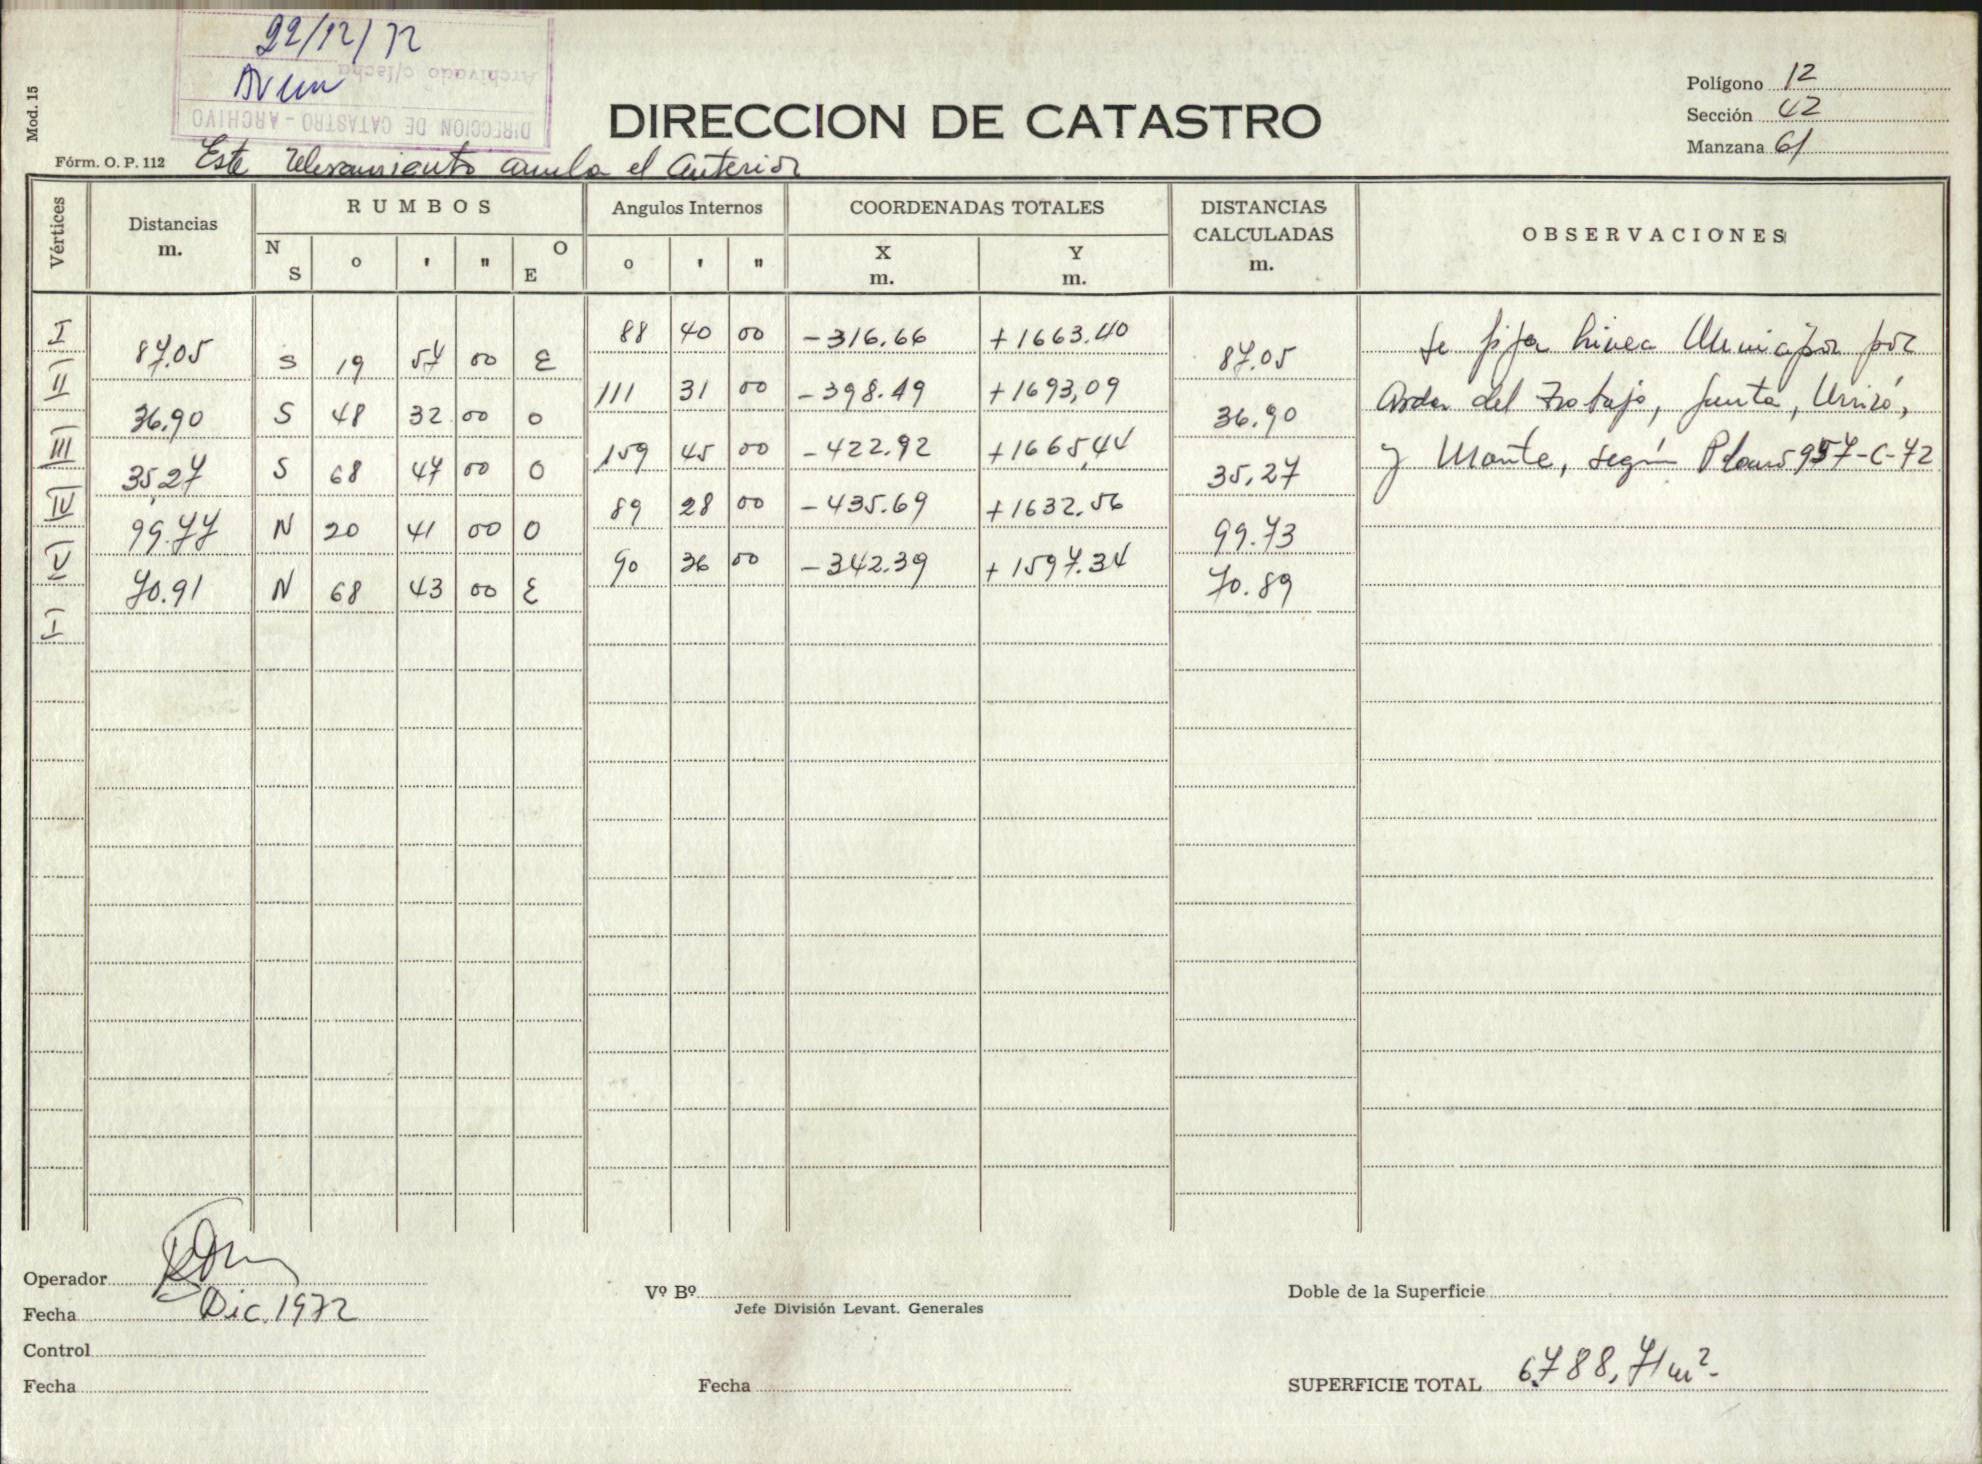 22/12/72
Archivado c/fecha
DIRECCION DE CATASTRO - ARCHIVO
Mod. 15
Fórm. O. P. 112
Este relevamiento anula el anterior
DIRECCION DE CATASTRO
Polígono 12
Sección 42
Manzana 61
Vértices Distancias m. RUMBOS N S o ' " O E Angulos Internos o ' " COORDENADAS TOTALES X m. Y m. DISTANCIAS CALCULADAS m. OBSERVACIONES
I 88 40 00 -316.66 +1663.40
87.05 S 19 57 00 E 87.05
II 111 31 00 -398.49 +1693,09
36,90 S 48 32 00 O 36,90
III 159 45 00 -422.92 +1665,44
35,27 S 68 47 00 O 35,27
IV 89 28 00 -435.69 +1632.56
99.77 N 20 41 00 O 99.73
V 90 36 00 -342.39 +1597.34
70.91 N 68 43 00 E 70.89
I
Se fija Linea Municipal por
Avda del Trabajo, Santa,
y Monte, según Plano 957-C-72
Operador
Fecha Dic. 1972
Control
Fecha
Vº Bº
Jefe División Levant. Generales
Fecha
Doble de la Superficie
SUPERFICIE TOTAL 6.788,71 m²-